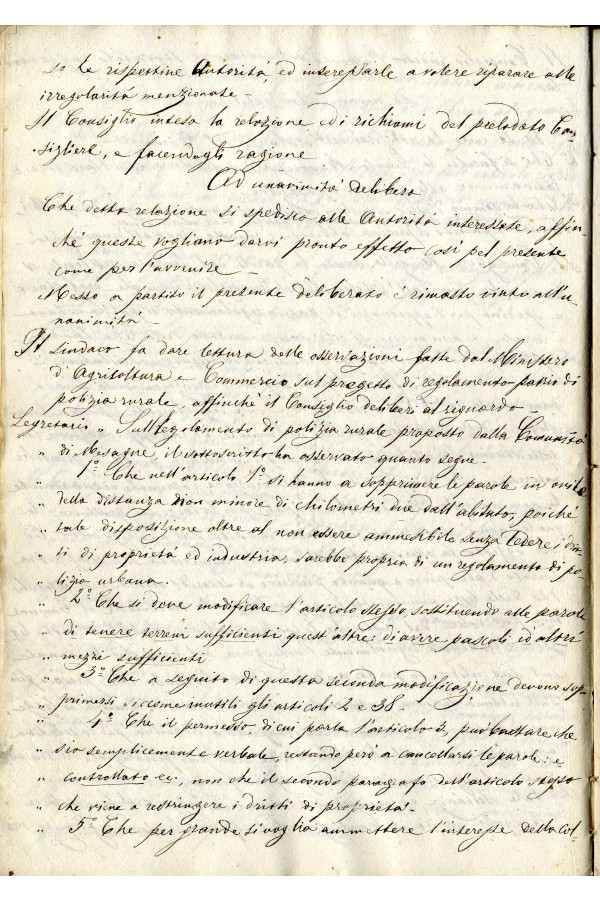 so le rispettive Autorità, ed interessarle a volere riparare alle
irregolarità menzionate -
Il Consiglio intesa la relazione ed i richiami del prelodato Con-
sigliere, e facendogli ragione
Ad unanimità delibera
Che detta relazione si spedisca alle Autorità interessate, affin-
ché queste vogliano darvi pronto effetto così pel presente
come per l'avvenire -
Messo a partito il presente deliberato è rimasto vinto all'u-
nanimità -
Il Sindaco fa dare lettura delle osservazioni fatte dal Ministero
d'Agricoltura e Commercio sul progetto di regolamento patrio di
polizia rurale, affinché il Consiglio deliberi al riguardo -
Segretario „ Sul Regolamento di polizia rurale proposto dalla Comunità
„ di Mesagne, il sottoscritto ha osservato quanto segue.
„ 1º Che nell'articolo 1º si hanno a sopprimere le parole
„ della distanza non minore di chilometri due dall'abitato, poiché
„ tale disposizione oltre al non essere ammesibile senza ledere i drit-
„ ti di proprietà ed industria, sarebbe propria di un regolamento di po-
„ lizia urbana.
„ 2º Che si deve modificare l'articolo stesso, sostituendo alle parole
„ di tenere terreni sufficienti quest'altre: di avere pascoli ed altri
„ mezzi sufficienti
„ 3º Che a seguito di questa seconda modificazione devono sop-
„ primersi siccome inutili gli articoli 2 e 38.
„ 4º Che il permesso di cui parla l'articolo 3, può bastare che
„ sia semplicemente verbale, restando però a cancellarsi le parole: e
„ controllato ec:, non che il secondo paragrafo dell'articolo stesso
„ che viene a restringere i dritti di proprietà.
„ 5º Che per grande si voglia ammettere l'interesse della col-